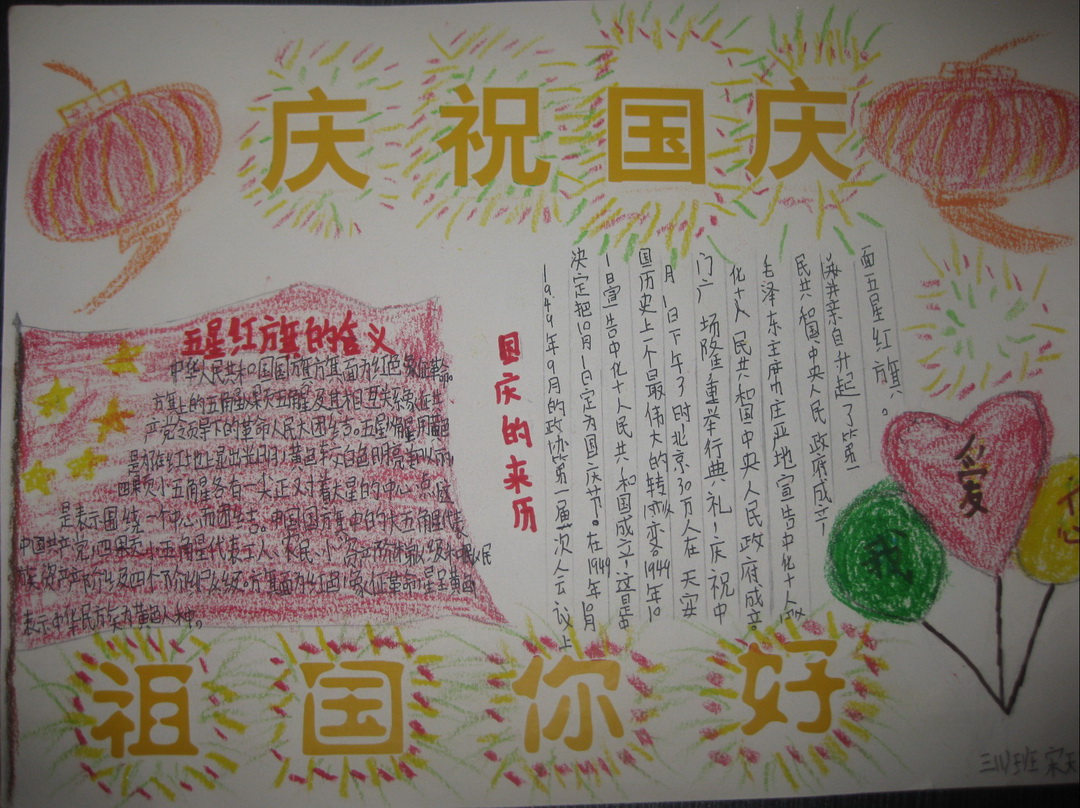 庆祝国庆
五星红旗的含义
中华人民共和国国旗旗面为红色象征革命。
方其上的五角星及其相互关系象征共
产党领导下的革命人民大团结。五星角星用黄色
是为在红地上显出光明,黄色较白色明亮
四颗小五角星各有一尖正对着大星的中心点
是表示围绕一个中心而团结。中国国旗中的大五角星代表
中国共产党,四颗小五角星代表工人、农民、小资产阶级和民
族资产阶级四个阶级。旗面为红色,象征革命,星呈黄色
表示中华民族为黄色人种。
国庆的来历
1949年9月的政协第一届一次人云议上
决定把10月1日定为国庆节。在1949年10月
1日宣告中化十人民共和国成立!这是中
国历史上一个最伟大的转变。1949年10
月1日下午3时北京30万人在天安
门广场隆重举行典礼!庆祝中
化十人民共和国中央人民政府成立。
毛泽东主席庄亚地宣告中化十人
民共和国中央人民政府成立!
并亲自升起了第一
面五星红旗。
我
爱
祖国你好
三川班 宋